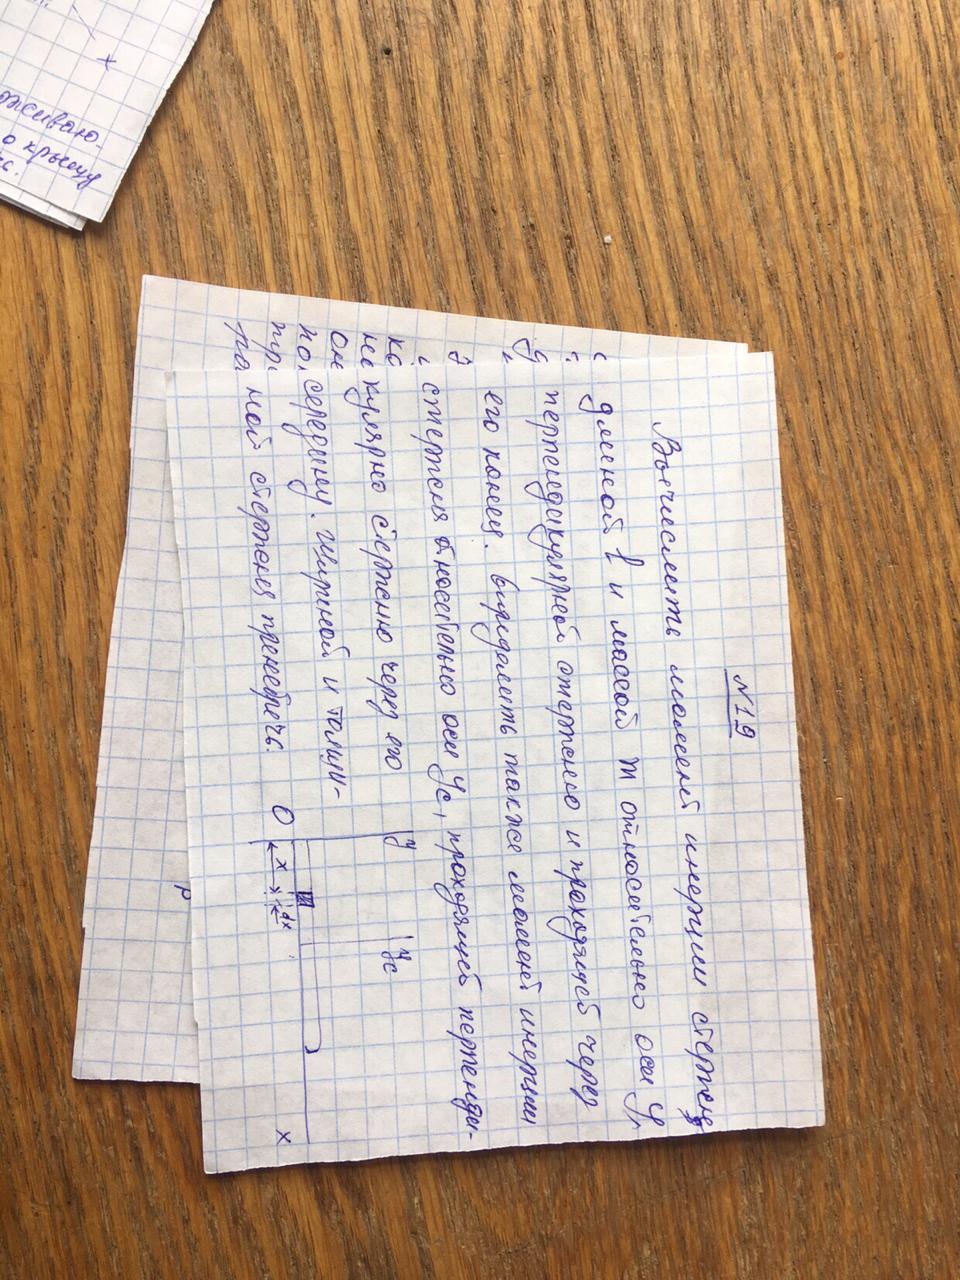 N19
Вычислить момент инерции стержня
длиной l и массой m относительно оси y,
перпендикулярной стержню и проходящей через
его конец. Определить также момент инерции
стержня относительно оси yc, проходящей перпенди-
кулярно стержню через его
середину. Шириной и толщи-
ной стержня пренебречь.
y yc
O x dx x
x
о крышу